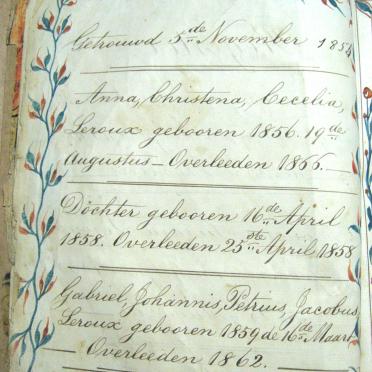 Getrouwd 5de November 1854
Anna, Christena, Cecelia,
Leroux gebooren 1856. 19de
Augustus - Overleeden 1866.
Dochter gebooren 16de April
1858. Overleeden 25ste April 1858
Gabriel, Johannis, Petrius, Jacobus,
Leroux gebooren 1859 de 16de Maart
Overleeden 1862.